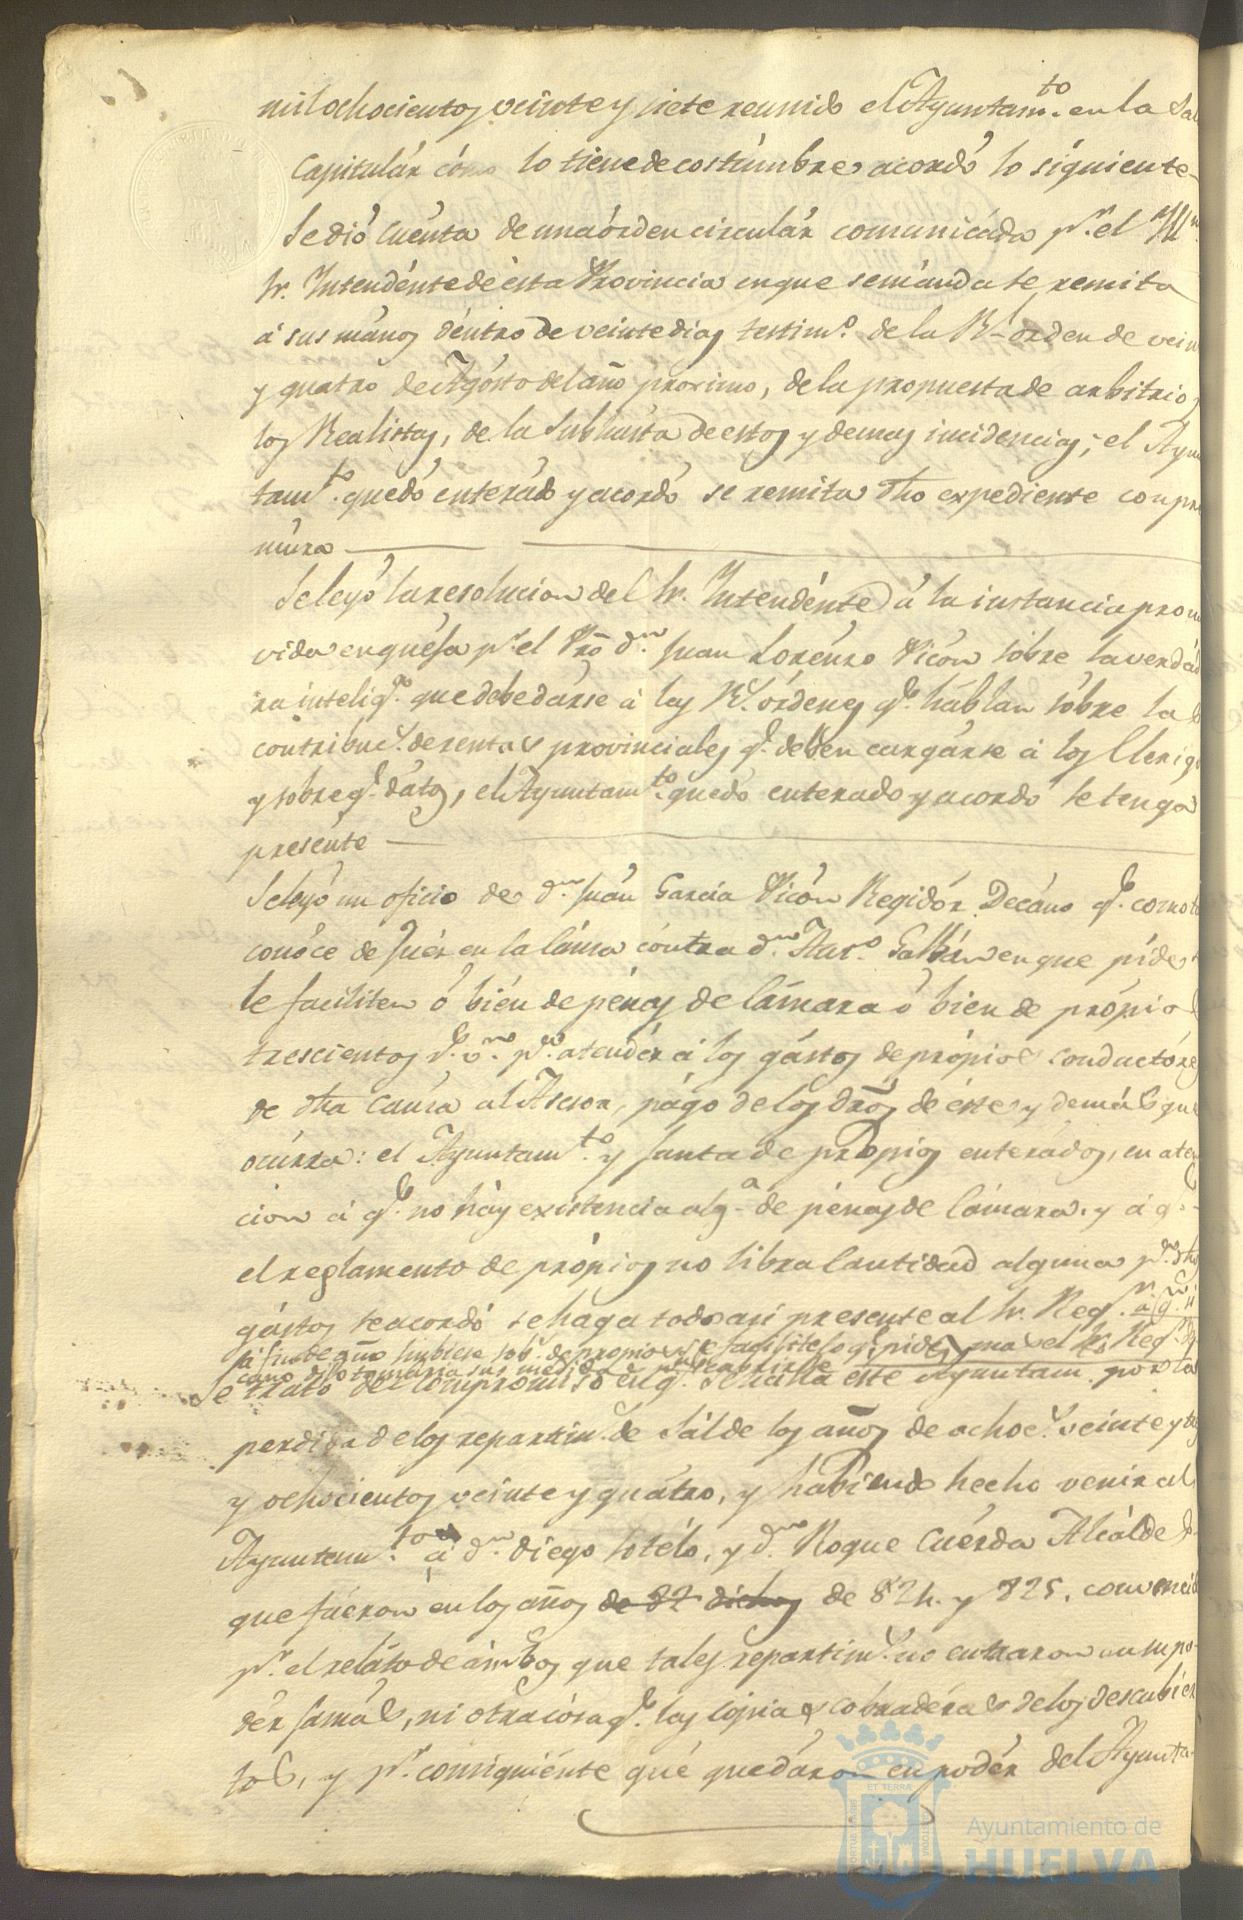 mil ochocientos veinte y siete reunido el Ayuntam.to en la Sal
Capitulár cómo lo tiene de costúmbre acordó lo síguiente
Se dió cuénta de una órden circulár comunicáda p.r el Yll.
Sr. Yntendénte de ésta Provincia en que se mánda se remita
á sus mános déntro de veinte dias testim.o de la R.l órden de vein
y quatro de Agósto del año procsimo, de la propuesta de arbitrios
los Realistas, de la Subhasta de estos y demas incidencias; el Ayun
tam.to quedó enterádo y acordó se remita dho expediente con pre
múra
Se leyó la resolucion del Sr. Yntendénte á la instancia promo
vida en quésa p.r el Pro d.n Juan Lorénzo Picón sóbre la verdád
ra intelig.a que debe dárse á las R.s órdenes q.e háblan sóbre la
contribuc.n de rentas provinciales q.e deben cargárse á los Clerigo
y sobre q.e dátos, el Ayuntam.to quedó enterado y acordó se tenga
presénte
Se leyó un oficio de d.n Juán Garcia Picón Regidór Decáno q.e como
conóce de Juéz en la Cáusa cóntra d.n Galbán en que píde
le faciliten ó bién de pénas de Cámara ó bien de própio
trescientos r.s v.n p.a atendér á los gástos de própios conductóres
de dha Cáusa al Asesor, págo de los drós de éste y demás que
ocúrra: el Ayuntam.to y Junta de própios enterádos, en aten
cion á q.e no háy existencia alg.a de pénas de Cámara, y á q.e
el reglamento de própios no libra Cantidad alguna p.a dhos
gástos se acordó se haga todo asi presente al Sr. Reg.r á q.n si
á fin de año hubiese sob.te de propios se facilite lo q.e pide, mas el Sr. Reg.r De
cano dijo tomaria sus medidas
Se trató del compromiso en q.e se halla este Ayuntam.to por la
perdida de los repartim.s de Sál de los años de ochoc.s veinte y
y ochocientos veinte y quátro, y habiendo hecho venir al
Ayuntam.to á d.n diego Sotélo, y d.n Roque Cuérda Alcálde
que fuéron en los años de 82 dichos de 824. y 825. convencid
p.r el reláto de ámbos que tales repartim.s no entraron en su po
dér Jamás, ni otra cósa q.e las cópias cobradéras de los descubiér
tos, y p.r consiguiénte qué quedáron en podér del Ayunta
ET TERRÆ
Ayuntamiento de
HUELVA